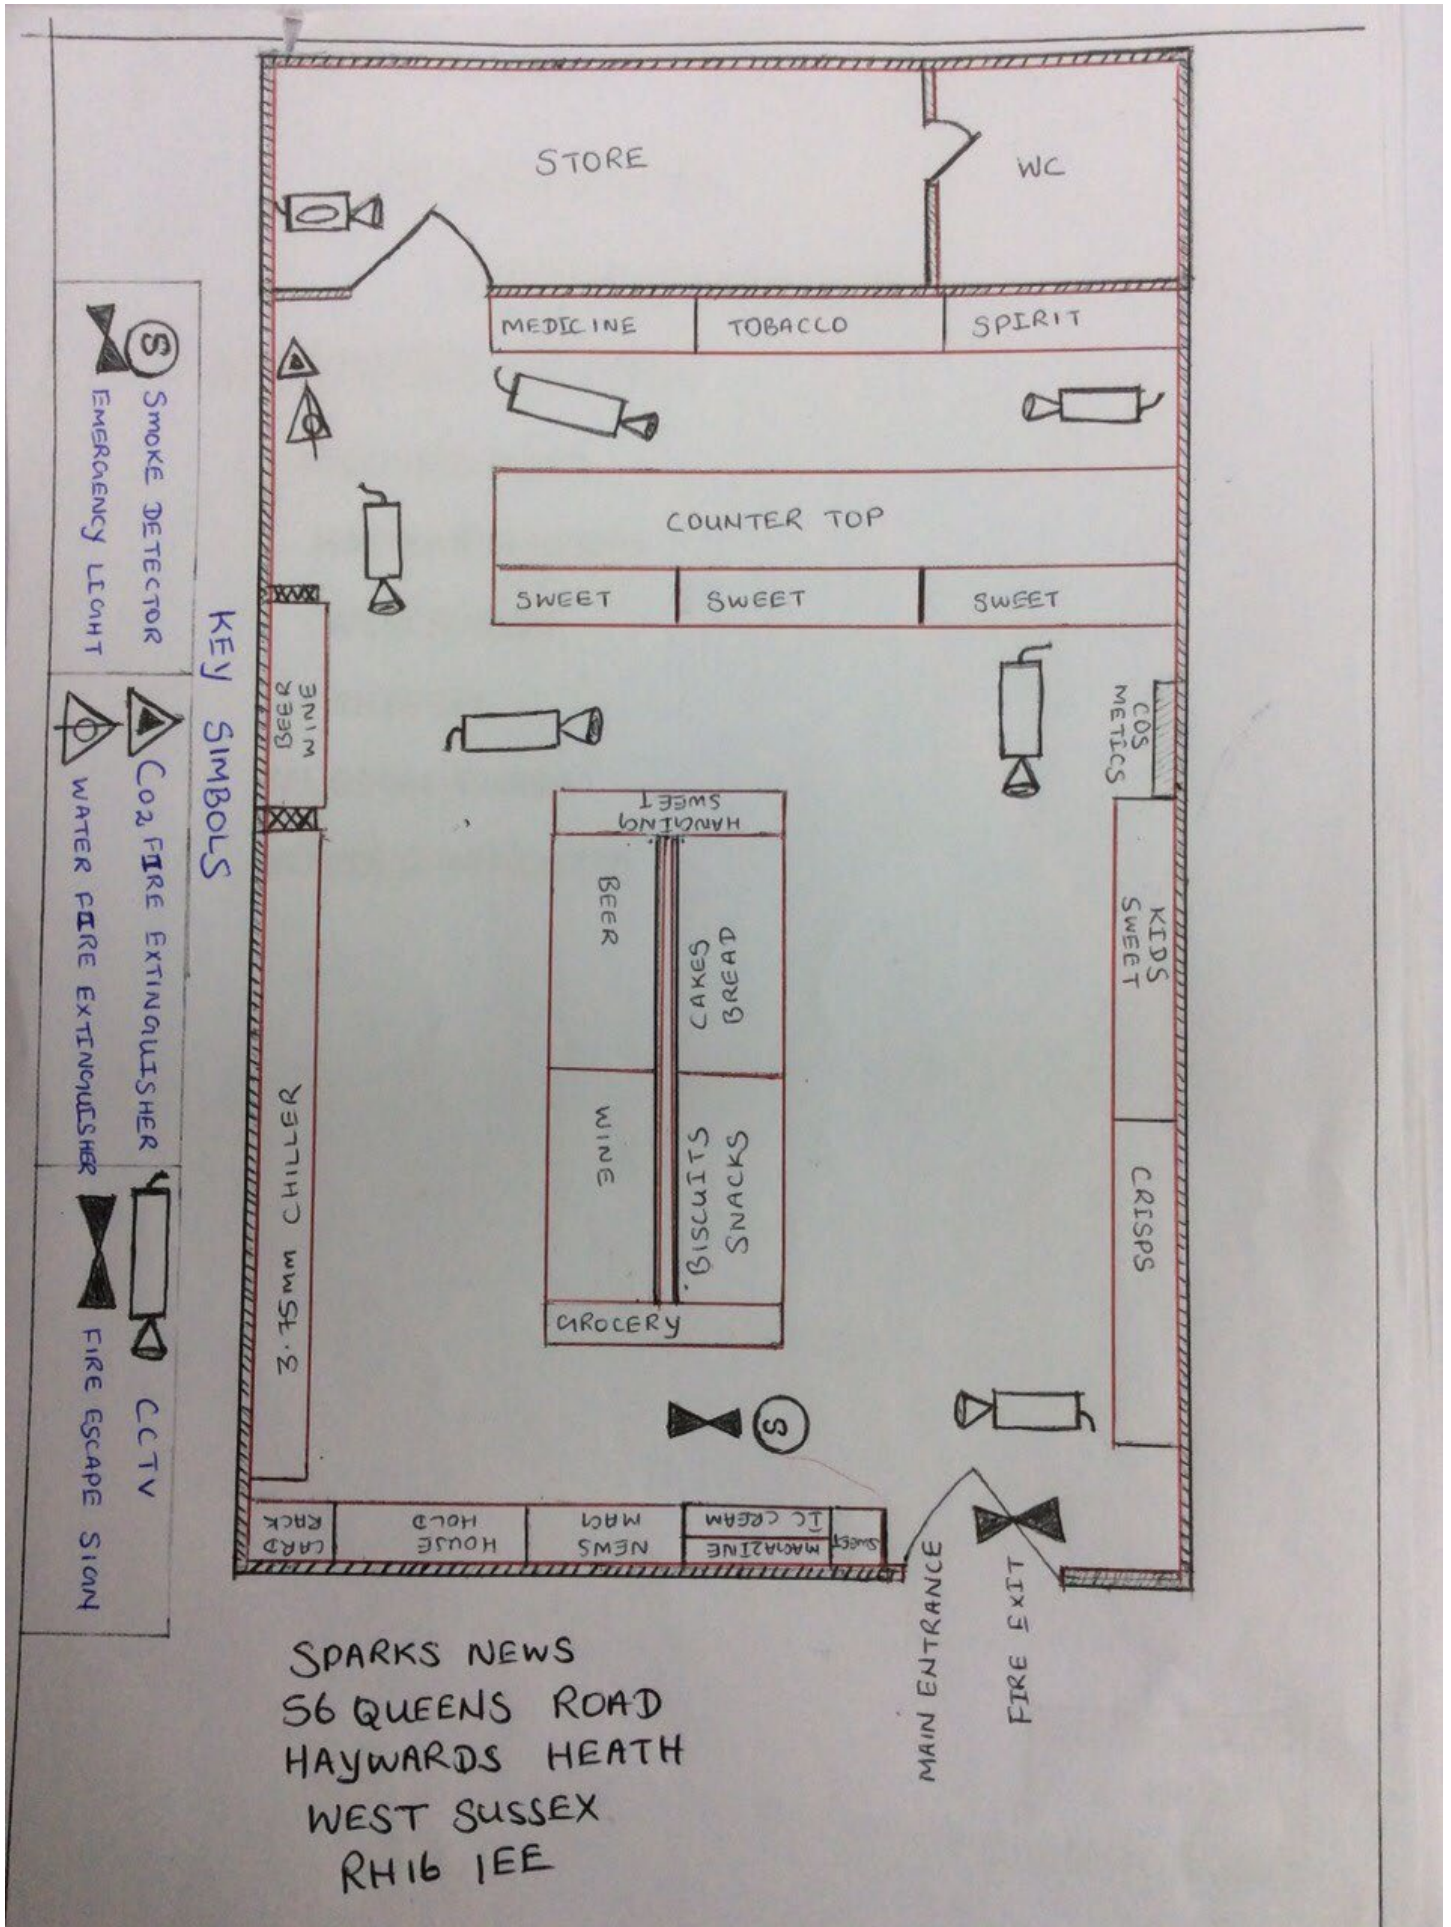 STORE
WC
MEDICINE
TOBACCO
SPIRIT
COUNTER TOP
SWEET
SWEET
SWEET
BEER
WINE
COS
METICS
HANGING
SWEET
BEER
CAKES
BREAD
KIDS
SWEET
WINE
BISCUITS
SNACKS
CRISPS
GROCERY
3.75mm CHILLER
S
CARD
RACK
HOUSE
HOLD
NEWS
MAG
MAGAZINE
IC CREAM
SWEET
MAIN ENTRANCE
FIRE EXIT
KEY SIMBOLS
S
SMOKE DETECTOR
EMERGENCY LIGHT
CO2 FIRE EXTINGUISHER
WATER FIRE EXTINGUISHER
CCTV
FIRE ESCAPE SIGN
SPARKS NEWS
56 QUEENS ROAD
HAYWARDS HEATH
WEST SUSSEX
RH16 1EE